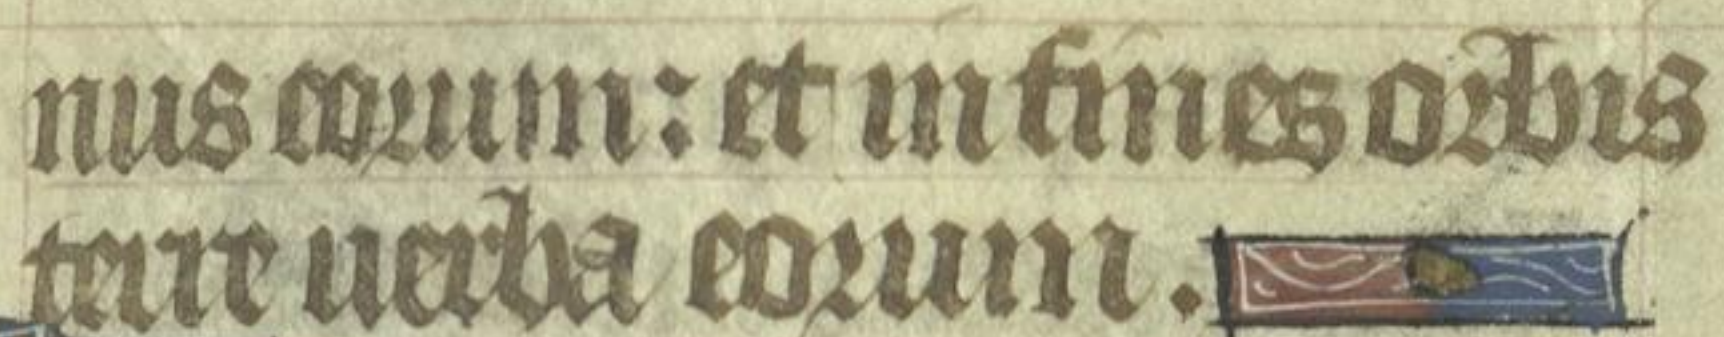 nus eorum: et in fines orbis
terre uerba eorum.